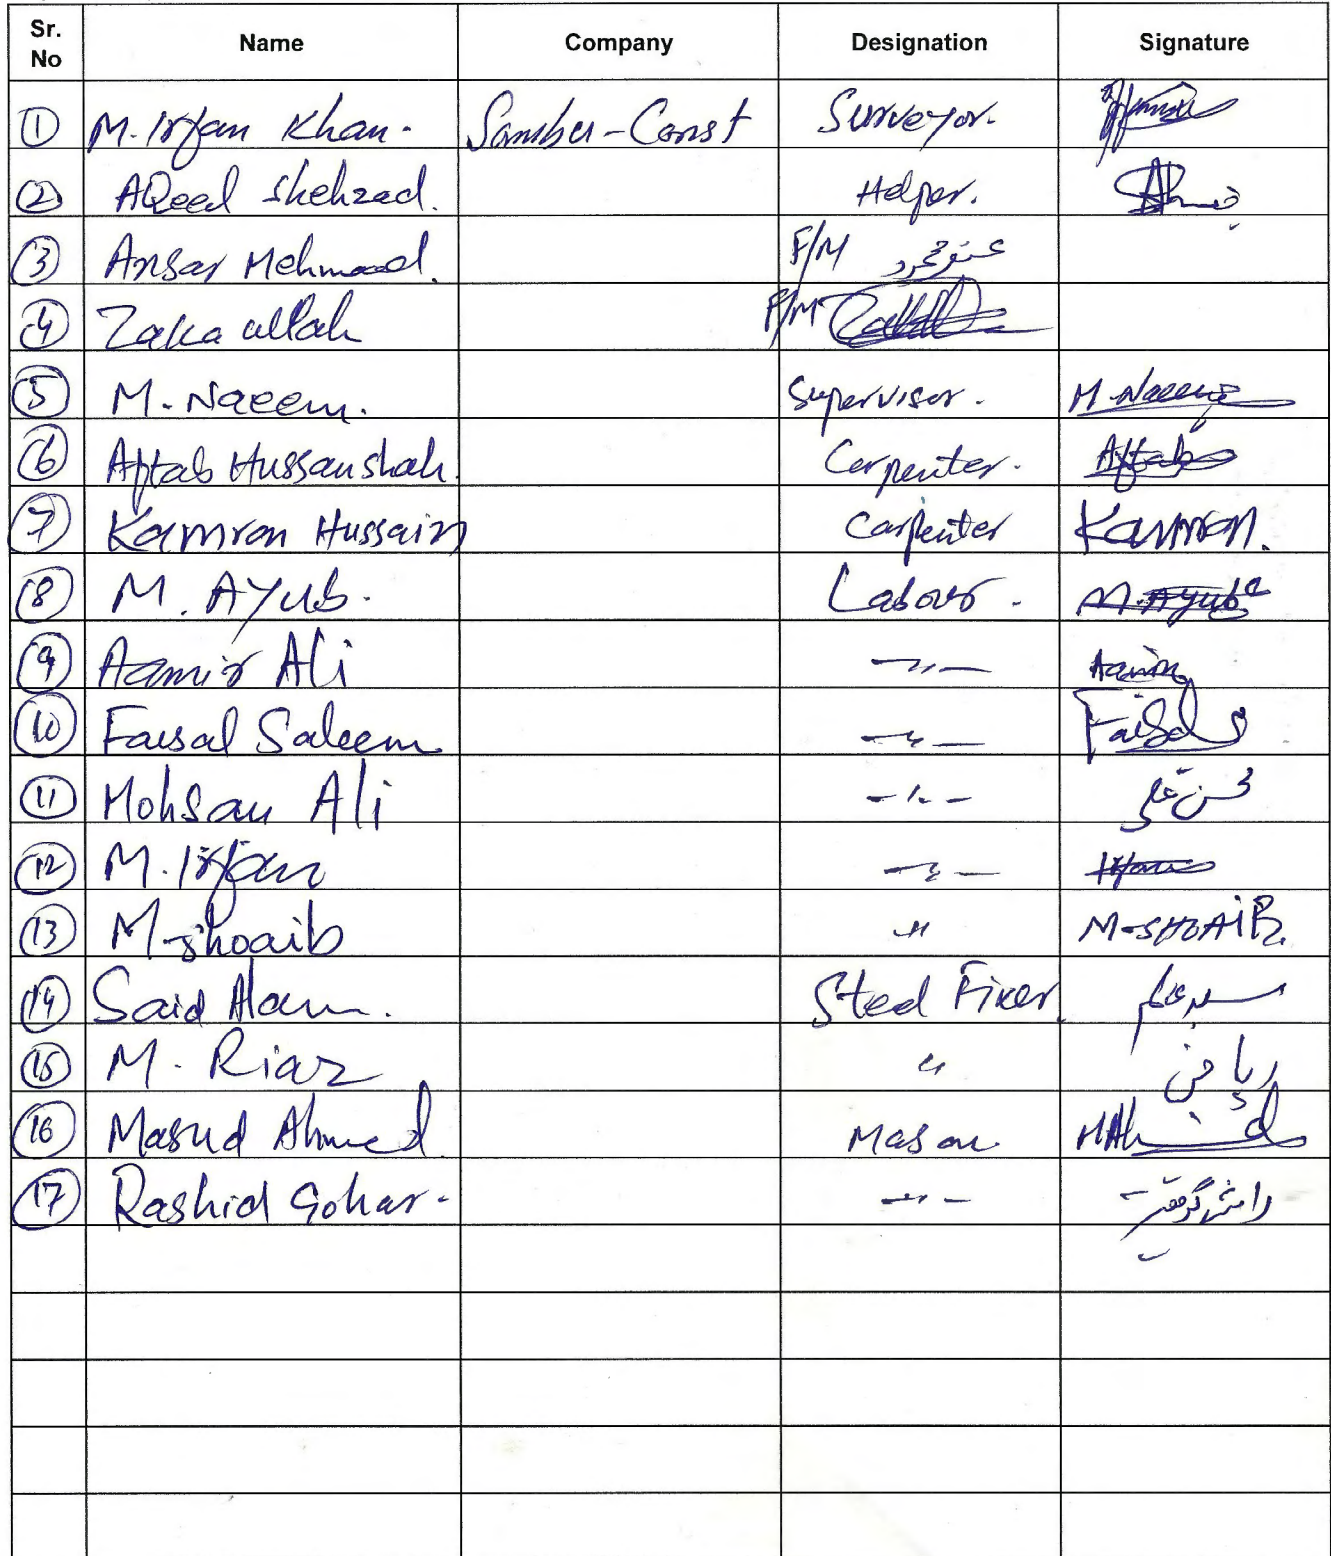 Sr. No Name Company Designation Signature
1 M. Irfan Khan. Sambu-Const Surveyor.
2 AQeel Shehzad. Helper.
3 Ansar Mehmood. F/M
4 Zaka ullah F/M
5 M. Naeem. Supervisor. M. Naeem
6 Aftab Hussan shah. Carpenter. Aftab
7 Kamran Hussain Carpenter Kamran.
8 M. AYub. Labour. M. Ayub
9 Aamir Ali -〃- Aamir
10 Faisal Saleem -〃- Faisal
11 Mohsan Ali -〃- محسن علی
12 M. Irfan -〃- Irfan
13 M-Shoaib 〃 M-SHOAIB.
14 Said Alam. Steel Fixer
15 M. Riaz 〃 ریاض
16 Masud Ahmed Mason
17 Rashid Gohar- -〃-